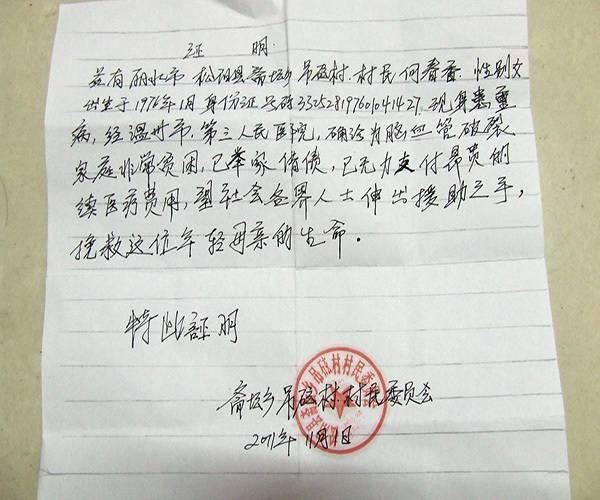 证 明
兹有丽水市 松阳县斋坛乡吊磕村.村民何春香.性别女
出生于1976年1月身份证号码332528197601041427.现身患重
病,经温州市.第三人民医院,确诊为脑血管破裂
家庭非常贫困,已举家借债,已无力支付昂贵的
续医疗费用,望社会各界人士伸出援助之手,
挽救这位年轻母亲的生命。
特此証明
斋坛乡吊磕村.村民委员会
2011年11月1日